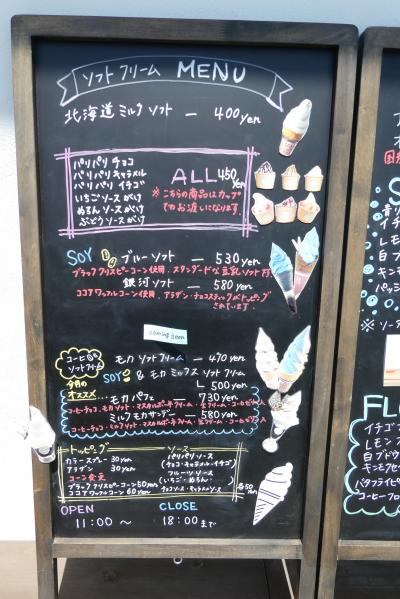 ソフトクリーム MENU
北海道ミルクソフト — 400yen
パリパリチョコ
パリパリキャラメル
パリパリイチゴ
いちごソースがけ
めろんソースがけ
ぶどうソースがけ
ALL 450yen
※こちらの商品はカップ
でのお渡しになります。
SOY ブルーソフト — 530yen
ブラッククリスピーコーン使用、スタンダードな豆乳ソフト
銀河ソフト — 580yen
ココアワッフルコーン使用、アラザン・チョコスティックがトッピング
されています。
coming soon
コーヒー
ソフトクリーム
モカソフトクリーム — 470yen
SOY & モカミックスソフト
L 500yen
今月の
オススメ
モカパフェ 730yen
コーヒーチョコ・モカソフト・マスカルポーネクリーム・生クリーム・コーヒーゼリー入
ミルクモカサンデー — 580yen
コーヒーチョコ・ミルクソフト・マスカルポーネクリーム・生クリーム・コーヒーゼリー入
トッピング
カラースプレー 30yen
アラザン 30yen
コーン変更
ブラッククリスピーコーン50yen
ココアワッフルコーン 60yen
ソース
パリパリソース
(チョコ・キャラメル・イチゴ)
フルーツソース
(いちご・めろん
チョコソース・キャラメルソース
各50yen
OPEN CLOSE
11:00 〜 18:00まで